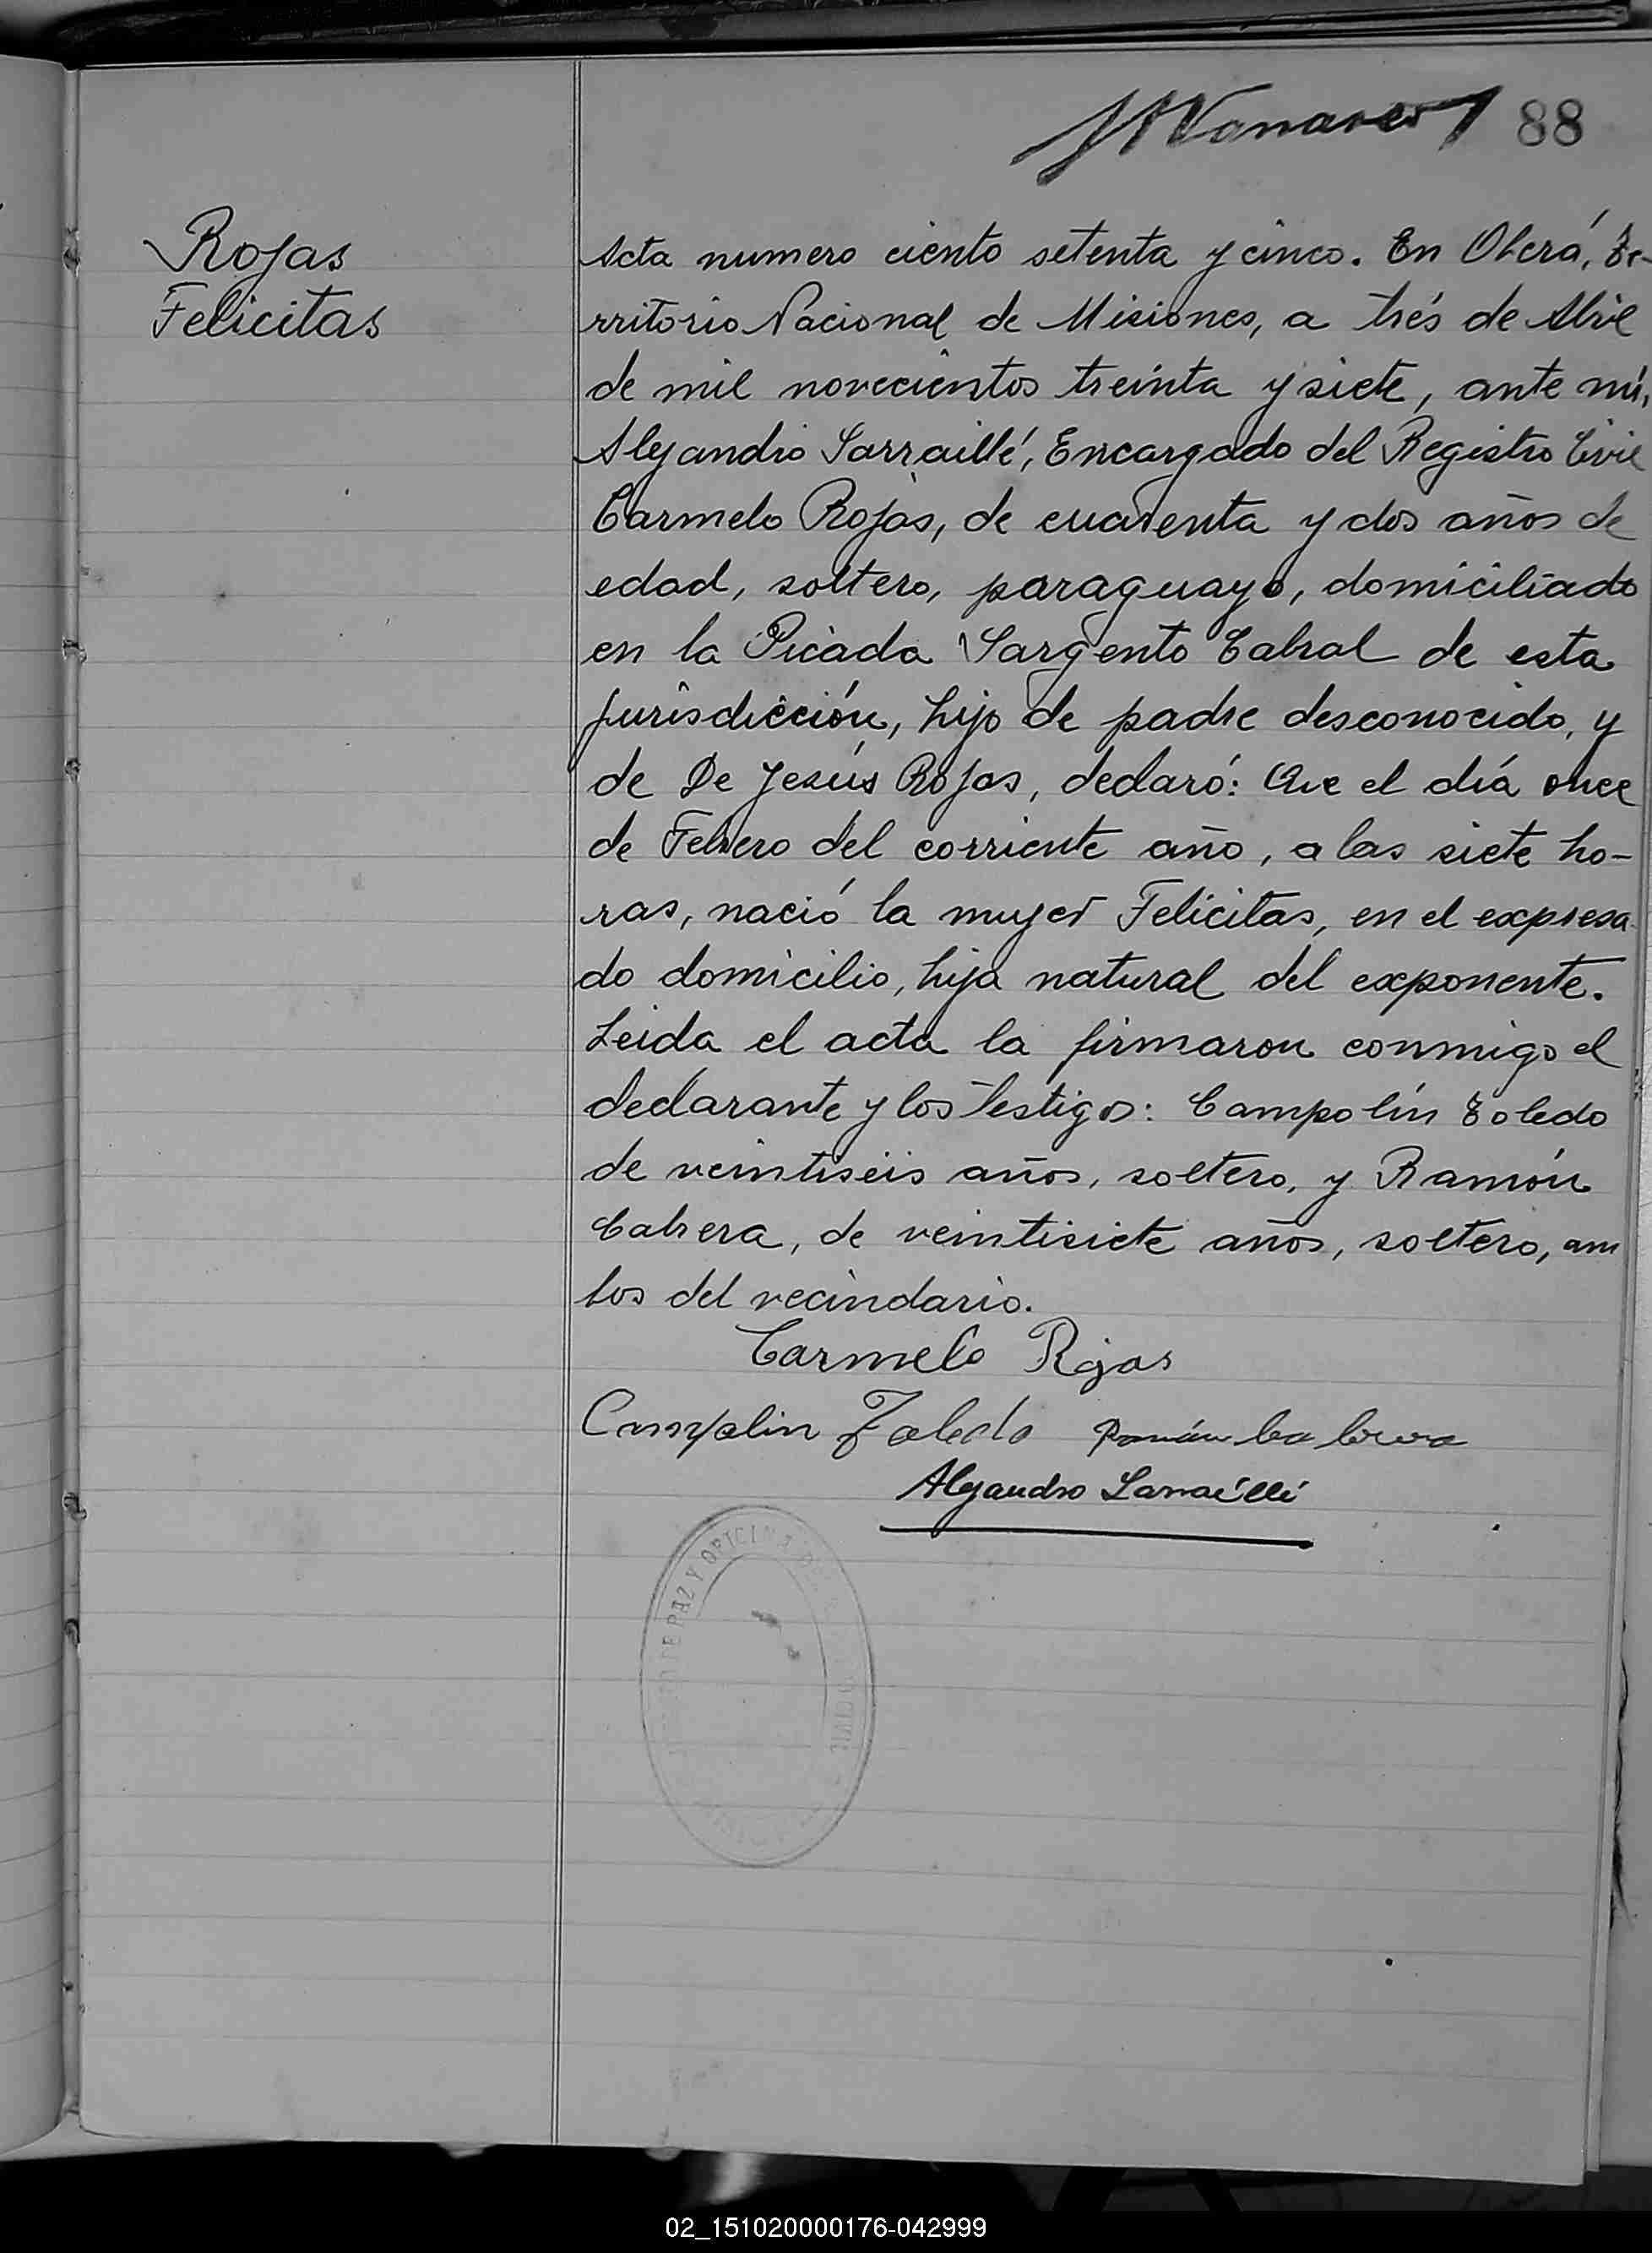 88
Rojas
Felicitas
Acta numero ciento setenta y cinco. En Oberá, Te-
rritorio Nacional de Misiones, a trés de Abril
de mil novecientos treinta y siete, ante mí,
Alejandro Sarraillé, Encargado del Registro Civil
Carmelo Rojas, de cuarenta y dos años de
edad, soltero, paraguayo, domiciliado
en la Picada Sargento Cabral de esta
jurisdicción, hijo de padre desconocido, y
de De Jesús Rojas, declaró: Que el día once
de Febrero del corriente año, a las siete ho-
ras, nació la mujer Felicitas, en el expresa
do domicilio, hija natural del exponente.
Leida el acta la firmaron conmigo el
declarante y los testigos: Campolín Toledo
de veintiséis años, soltero, y Ramón
Cabrera, de veintisiete años, soltero, am
bos del vecindario.
Carmelo Rojas
Campolin Toledo Ramón Cabrera
Alejandro Sarraillé
DE PAZ Y OFICINA
CIVIL
02_151020000176-042999